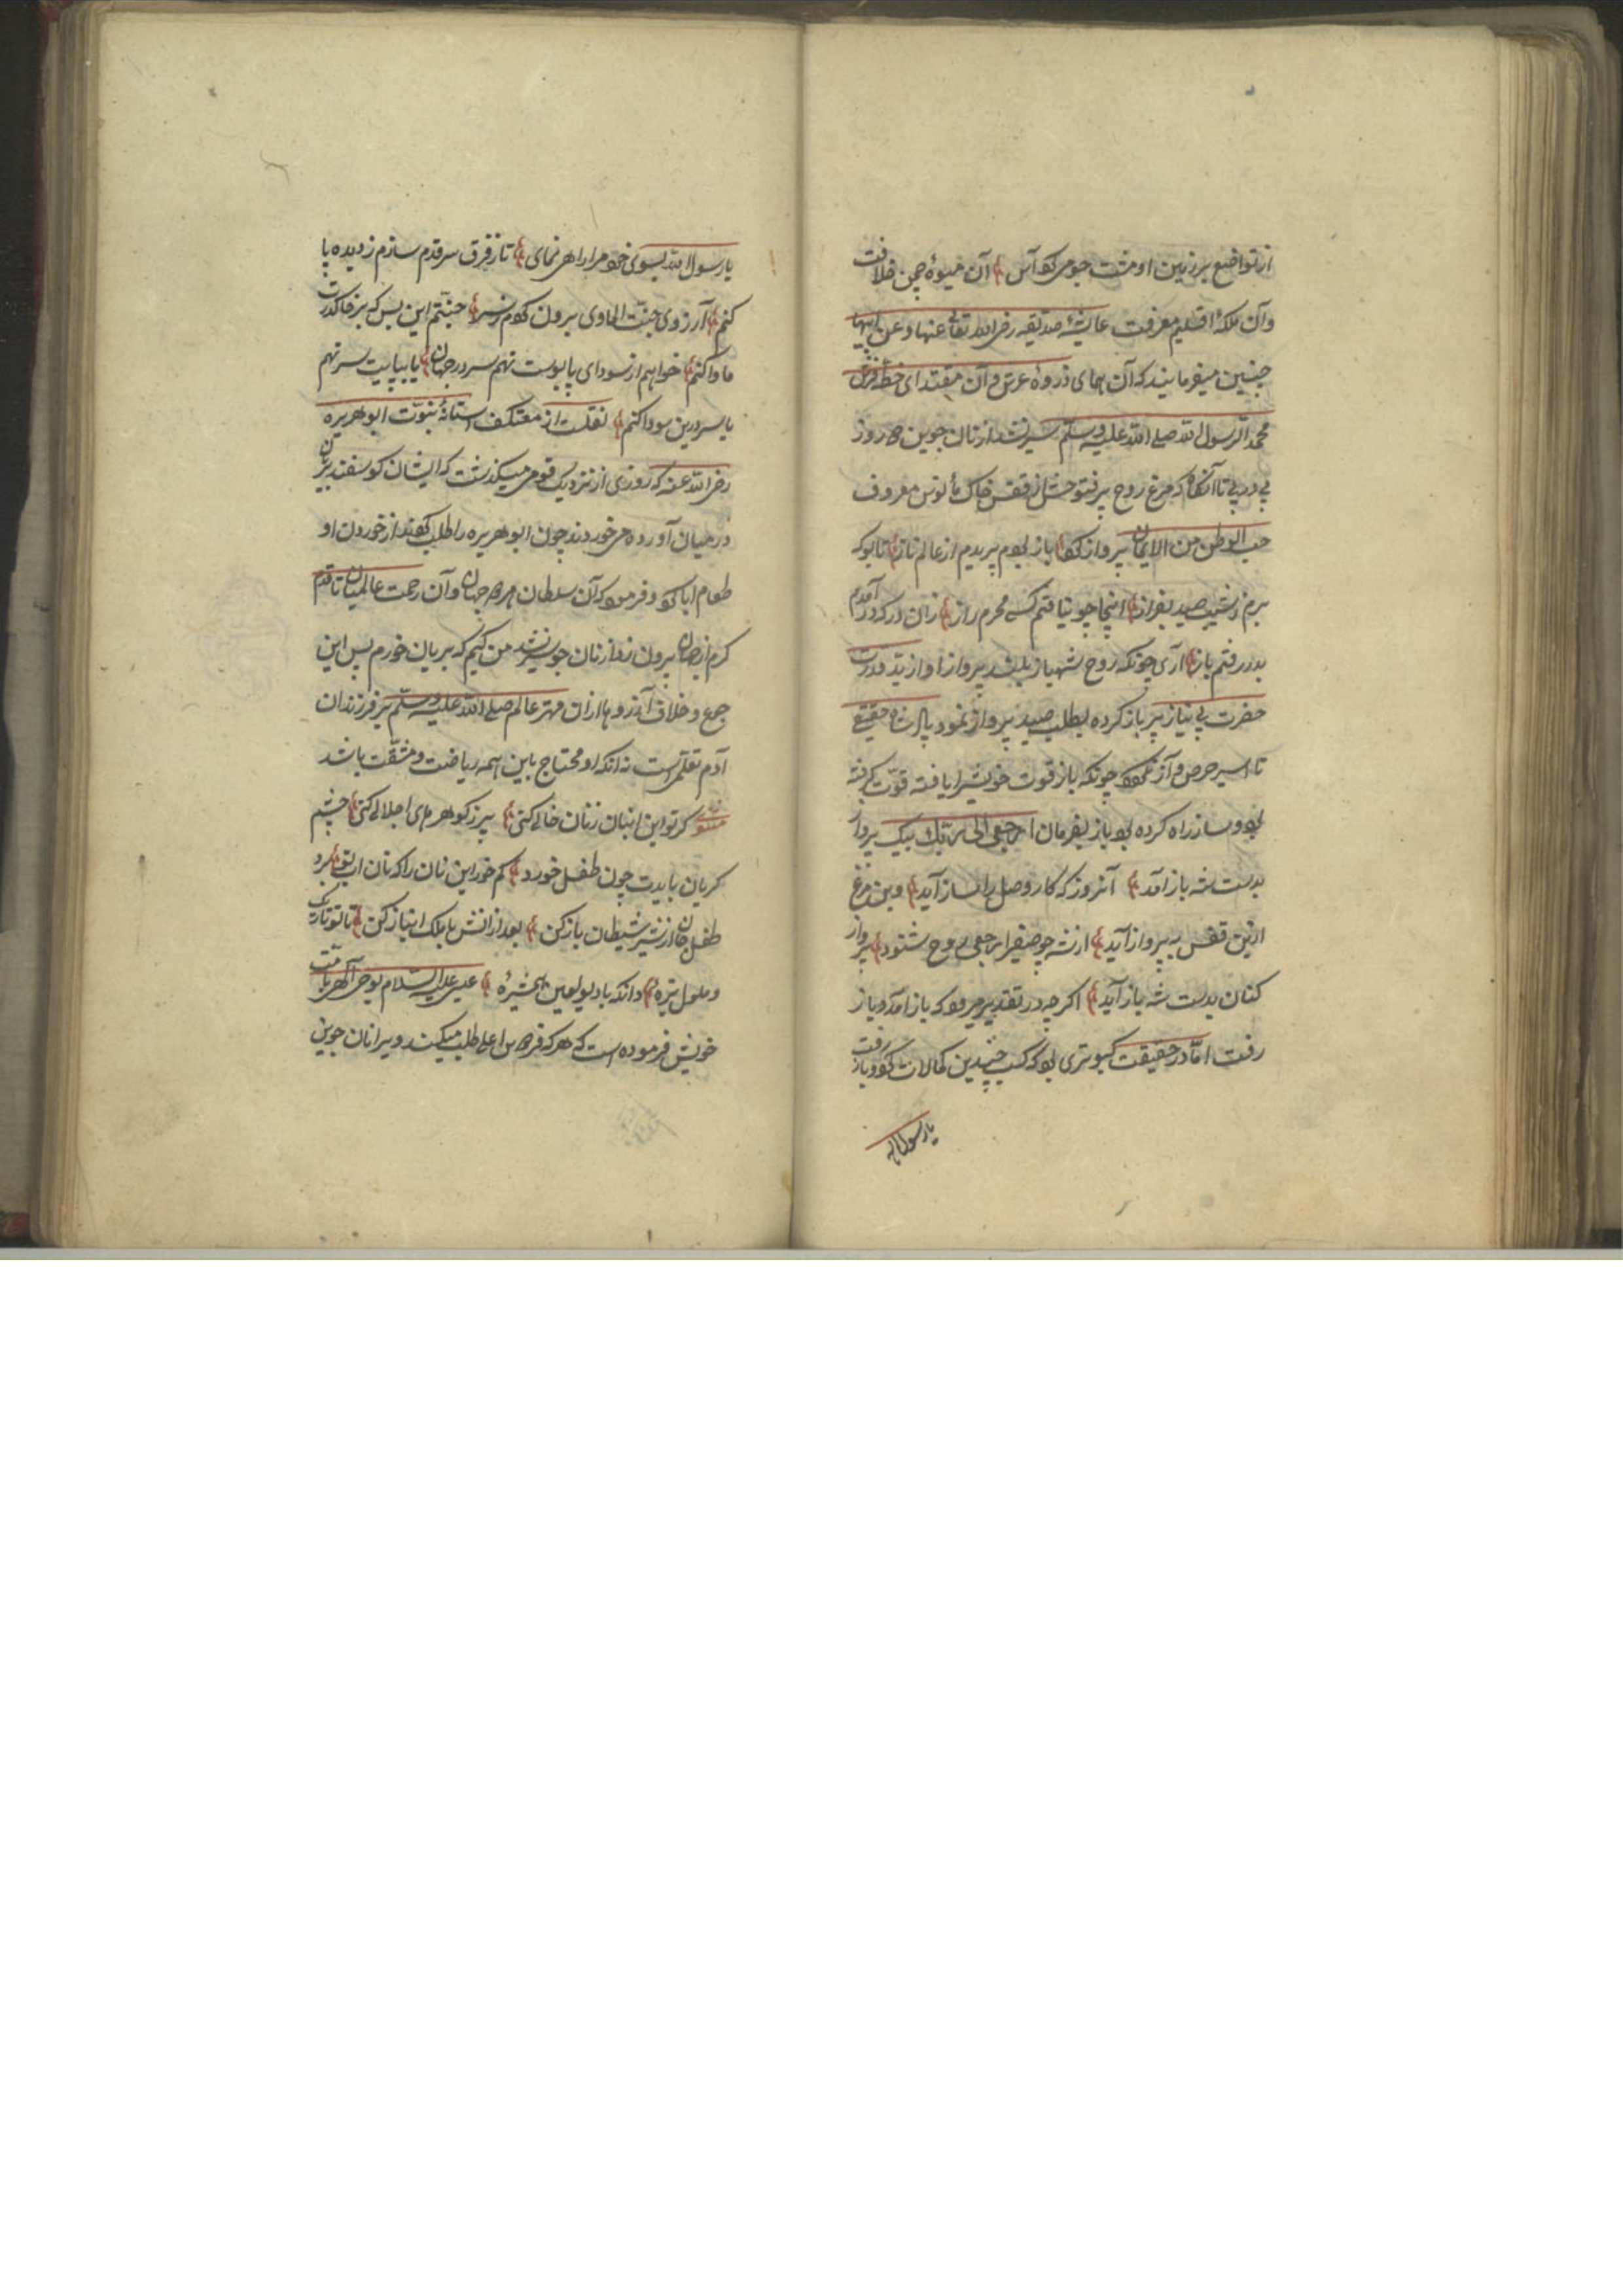 از تواضع بر زمین او مشت جو می کوآس آن میوهٔ چمن خلافت
وآن ملکهٔ اقلیم معرفت عایشهٔ صدیقه رضی الله تعالی عنها وعن ابیها
چنین میفرمایند که آن همای ذروهٔ عرش و آن مقتدای خطهٔ فرش
محمد الرسول الله صلی الله علیه وسلم سیر نشد از نان جوین سه روز
پی در پی تا آنگاه که مرغ روح پر فتوحش از قفس خاک مألوس معروف
حب الوطن من الایمان پرواز کرد باز بودم پریدم از عالم ناز تا بو که
برم ز شیب صیدی بفراز اینجا چو نیافتم کسی محرم راز زان در که در آمدم
بدر رفتم باز آری چونکه روح شهباز بلند پرواز او از ید قدرت
حضرت بی نیاز پر باز کرده بطلب صید پرواز نمود باز شاه حقیقی
تا اسیر حرص و آز نگردد چونکه باز قوت خویش را یافته قوت گرفته
بود و ساز راه کرده بود باز بفرمان ارجعی الی ربک بیک پرواز
بدست شه باز آمد آنروز که کار وصل را ساز آید وین مرغ
ازین قفس به پرواز آید از شه چو صفیر ارجعی روح شنود پرواز
کنان بدست شه باز آید اگر چه در تقدیر میرود که باز آمد و باز
رفت اما در حقیقت کبوتری بود که کسب چندین کمالات کرد و باز رفت
یا رسول الله
یا رسول الله بسوی خود مرا راهی نمای تا ز فرق سر قدم سازم ز دیده پا
کنم آرزوی جنت الماوی برون کردم ز سر جنتم این بس که بر خاک درت
ماوا کنم خواهم از سودای پابوست نهم سر در جهان یا بپایت سر نهم
یا سر درین سودا کنم نقلست از معتکف استانهٔ نبوت ابو هریره
رضی الله عنه که روزی از نزدیک قومی میگذشت که ایشان کوسفند بریان
در میان آورده می خوردند چون ابو هریره را طلب کردند از خوردن او
طعام ابا کرد و فرمود که آن سلطان هر دو جهان و آن رحمت عالمیان تا قدم
کرم از جهان بیرون نهاد از نان جو سیر نشد من کیم که بریان خورم پس این
جوع و خلاف آرزوها از آن مهتر عالم صلی الله علیه وسلم بر فرزندان
آدم تعلیم است نه آنکه او محتاج باین همه ریاضت و مشقت باشد
مثنوی کر تو این انبان ز نان خالی کنی پر ز کوهر های اجلالی کنی چشم
کریان بایدت چون طفل خورد کم خور این نان را که نان آب تو برد
طفل جان از شیر شیطان باز کن بعد ازانش با ملک انباز کن تا تو تاریک
و ملول تیره دانکه با دیو لعین همشیرهٔ عیسی علیه السلام بوحی الهی با امت
خویش فرموده است که هر که فردوس اعلی طلب میکند ویرا نان جوین